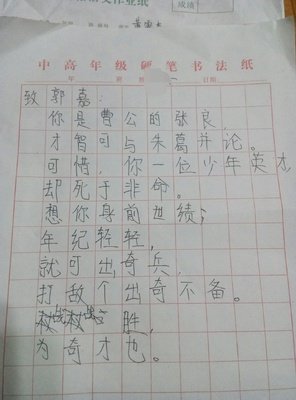 中高年级硬笔书法纸
年 班 日期
致郭嘉:
你是曹公的张良,
才智可与朱葛并论。
可惜,你一位少年英才,
却死于非命。
想你身前世绩;
年纪轻轻,
就可出奇兵,
打敌个出奇不备。
战战胜,
为奇才也。